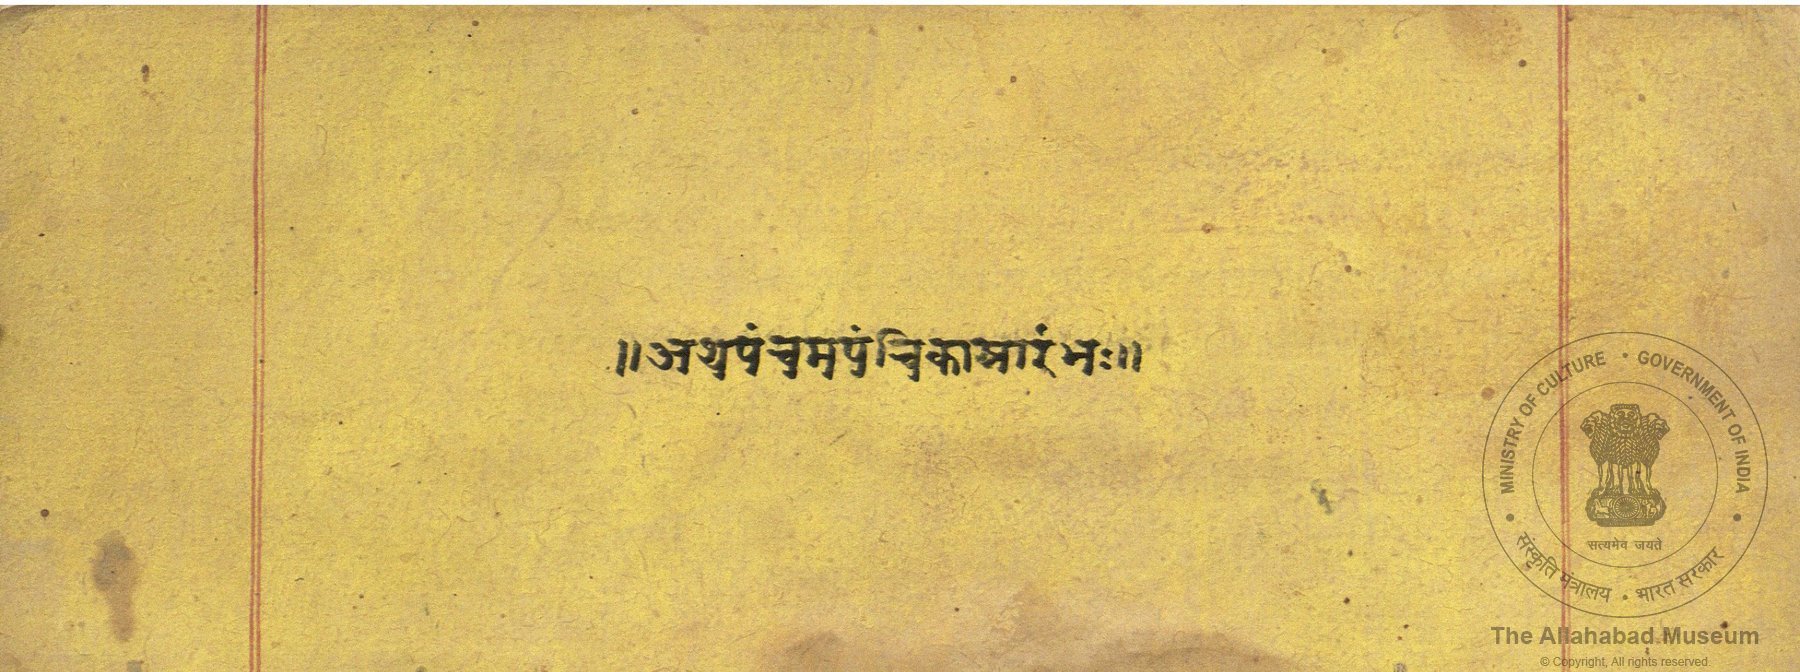 ॥अथपंचमपंचिकाआरंभः॥
MINISTRY OF CULTURE • GOVERNMENT OF INDIA
सत्यमेव जयते
संस्कृति मंत्रालय • भारत सरकार
The Allahabad Museum
© Copyright, All rights reserved